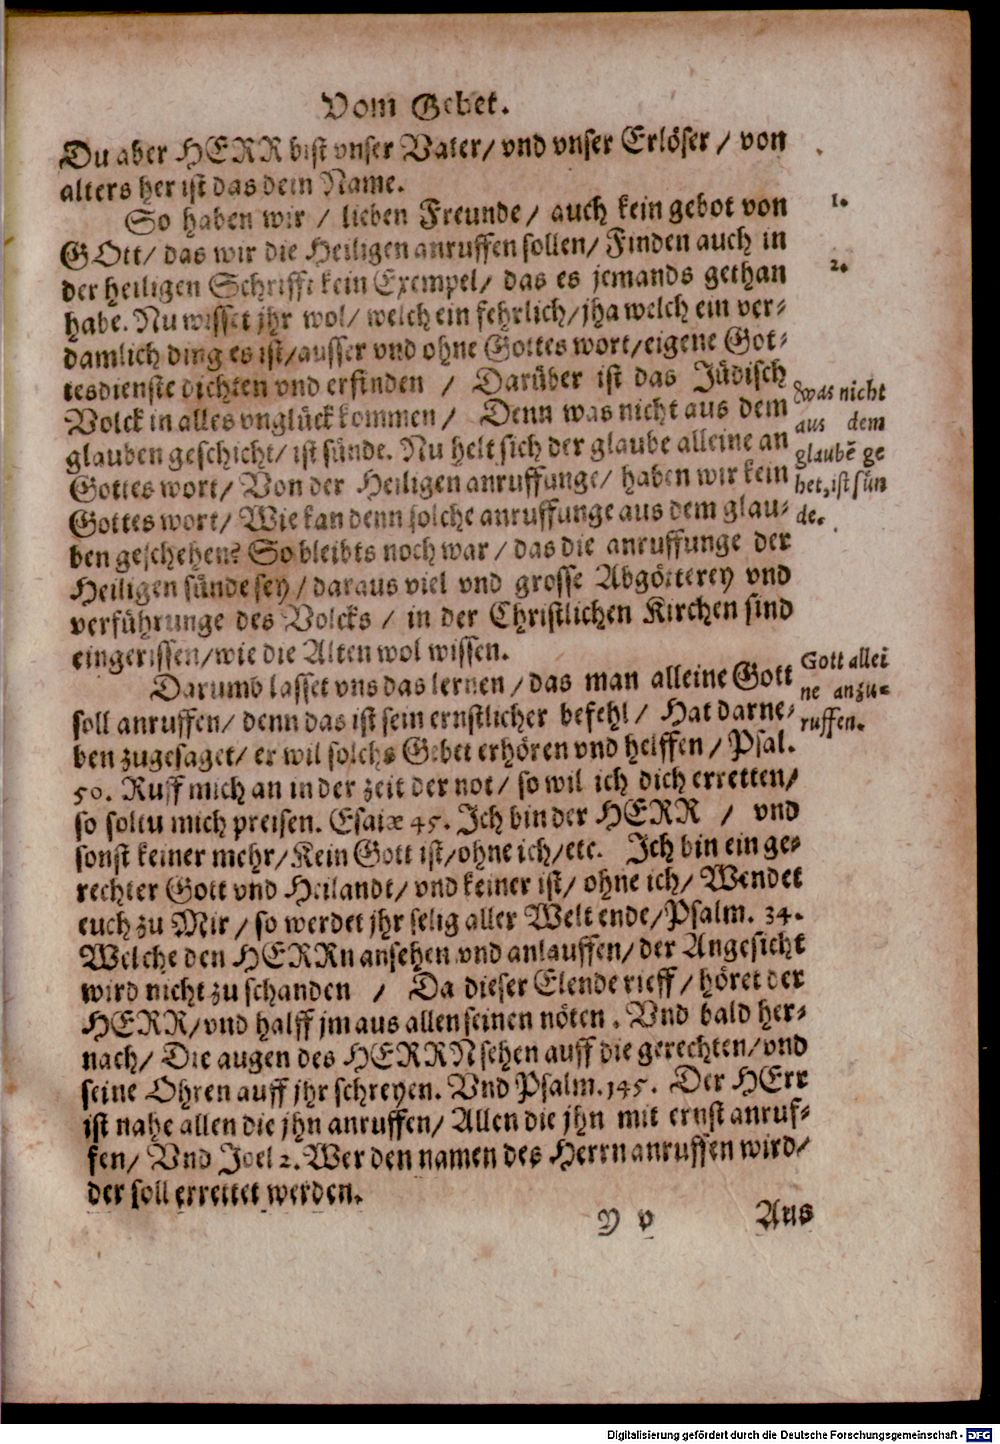 Vom Gebet.
Du aber HERR bist vnser Vater/ vnd vnser Erlöser / von
alters her ist das dein Name.
So haben wir / lieben Freunde/ auch kein gebot von
1.
GOtt/ das wir die Heiligen anruffen sollen/ Finden auch in
der heiligen Schrifft kein Exempel/ das es jemands gethan
2.
habe. Nu wisset jhr wol/ welch ein fehrlich/ jha welch ein ver-
damlich ding es ist/ ausser vnd ohne Gottes wort/ eigene Got-
tesdienste dichten vnd erfinden / Darüber ist das Jüdisch
Volck in alles vnglück kommen / Denn was nicht aus dem
glauben geschicht/ ist sünde. Nu helt sich der glaube alleine an
Gottes wort/ Von der Heiligen anruffunge/ haben wir kein
Gottes wort/ Wie kan denn solche anruffunge aus dem glau-
ben geschehen? So bleibts noch war / das die anruffunge der
Heiligen sünde sey / daraus viel vnd grosse Abgötterey vnd
verführunge des Volcks / in der Christlichen Kirchen sind
eingerissen/ wie die Alten wol wissen.
was nicht
aus dem
glaubē ge
het, ist sün
de.
Darumb lasset vns das lernen / das man alleine Gott
soll anruffen/ denn das ist sein ernstlicher befehl / Hat darne-
ben zugesaget/ er wil solchs Gebet erhören vnd helffen / Psal.
50. Ruff mich an in der zeit der not/ so wil ich dich erretten/
so soltu mich preisen. Esaiæ 45. Ich bin der HERR / vnd
sonst keiner mehr/ Kein Gott ist/ ohne ich/ etc. Ich bin ein ge-
rechter Gott vnd Heilandt/ vnd keiner ist/ ohne ich/ Wendet
euch zu Mir / so werdet jhr selig aller Welt ende/ Psalm. 34.
Welche den HERRn ansehen vnd anlauffen/ der Angesicht
wird nicht zu schanden / Da dieser Elende rieff / höret der
HERR/ vnd halff jm aus allen seinen nöten. Vnd bald her-
nach/ Die augen des HERRN sehen auff die gerechten/ vnd
seine Ohren auff jhr schreyen. Vnd Psalm. 145. Der HErr
ist nahe allen die jhn anruffen/ Allen die jhn mit ernst anruf-
fen/ Vnd Joel 2. Wer den namen des Herrn anruffen wird/
der soll errettet werden.
Gott allei
ne anzu-
ruffen.
Y v
Aus
Digitalisierung gefördert durch die Deutsche Forschungsgemeinschaft - DFG